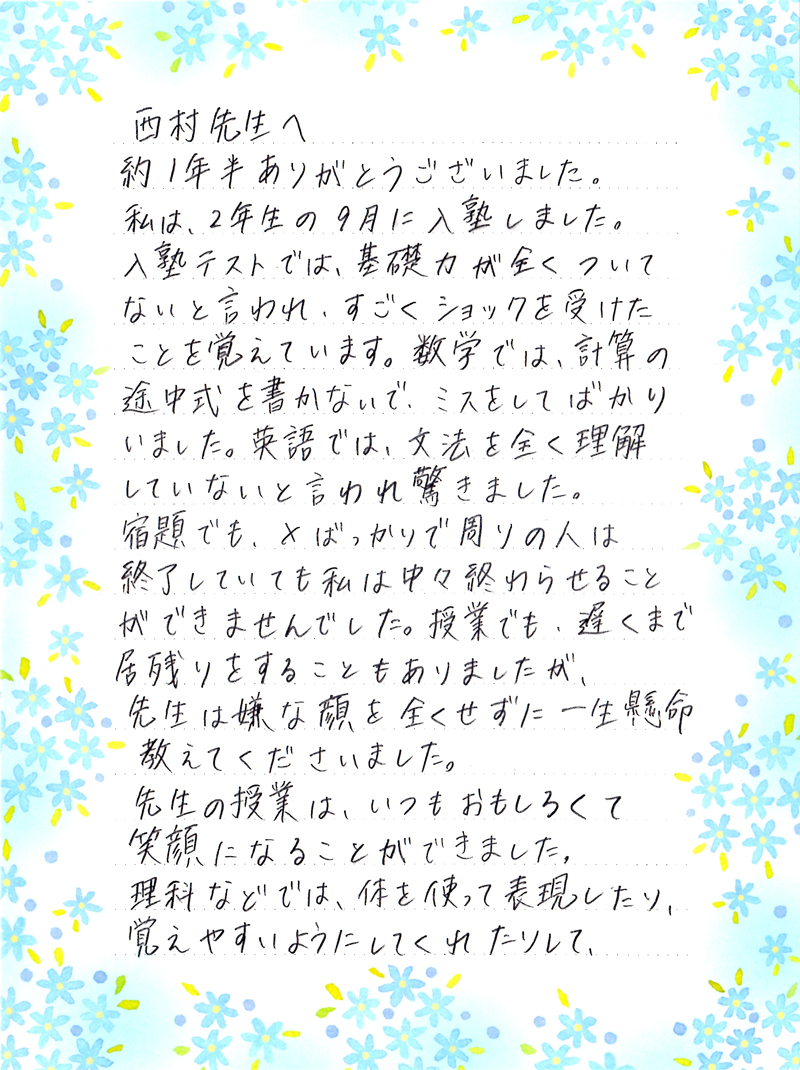 西村先生へ
約1年半ありがとうございました。
私は、2年生の9月に入塾しました。
入塾テストでは、基礎力が全くついて
ないと言われ、すごくショックを受けた
ことを覚えています。数学では、計算の
途中式を書かないで、ミスをしてばかり
いました。英語では、文法を全く理解
していないと言われ驚きました。
宿題でも、×ばっかりで周りの人は
終了していても私は中々終わらせること
ができませんでした。授業でも、遅くまで
居残りをすることもありましたが、
先生は嫌な顔を全くせずに一生懸命
教えてくださいました。
先生の授業は、いつもおもしろくて
笑顔になることができました。
理科などでは、体を使って表現したり、
覚えやすいようにしてくれたりして、